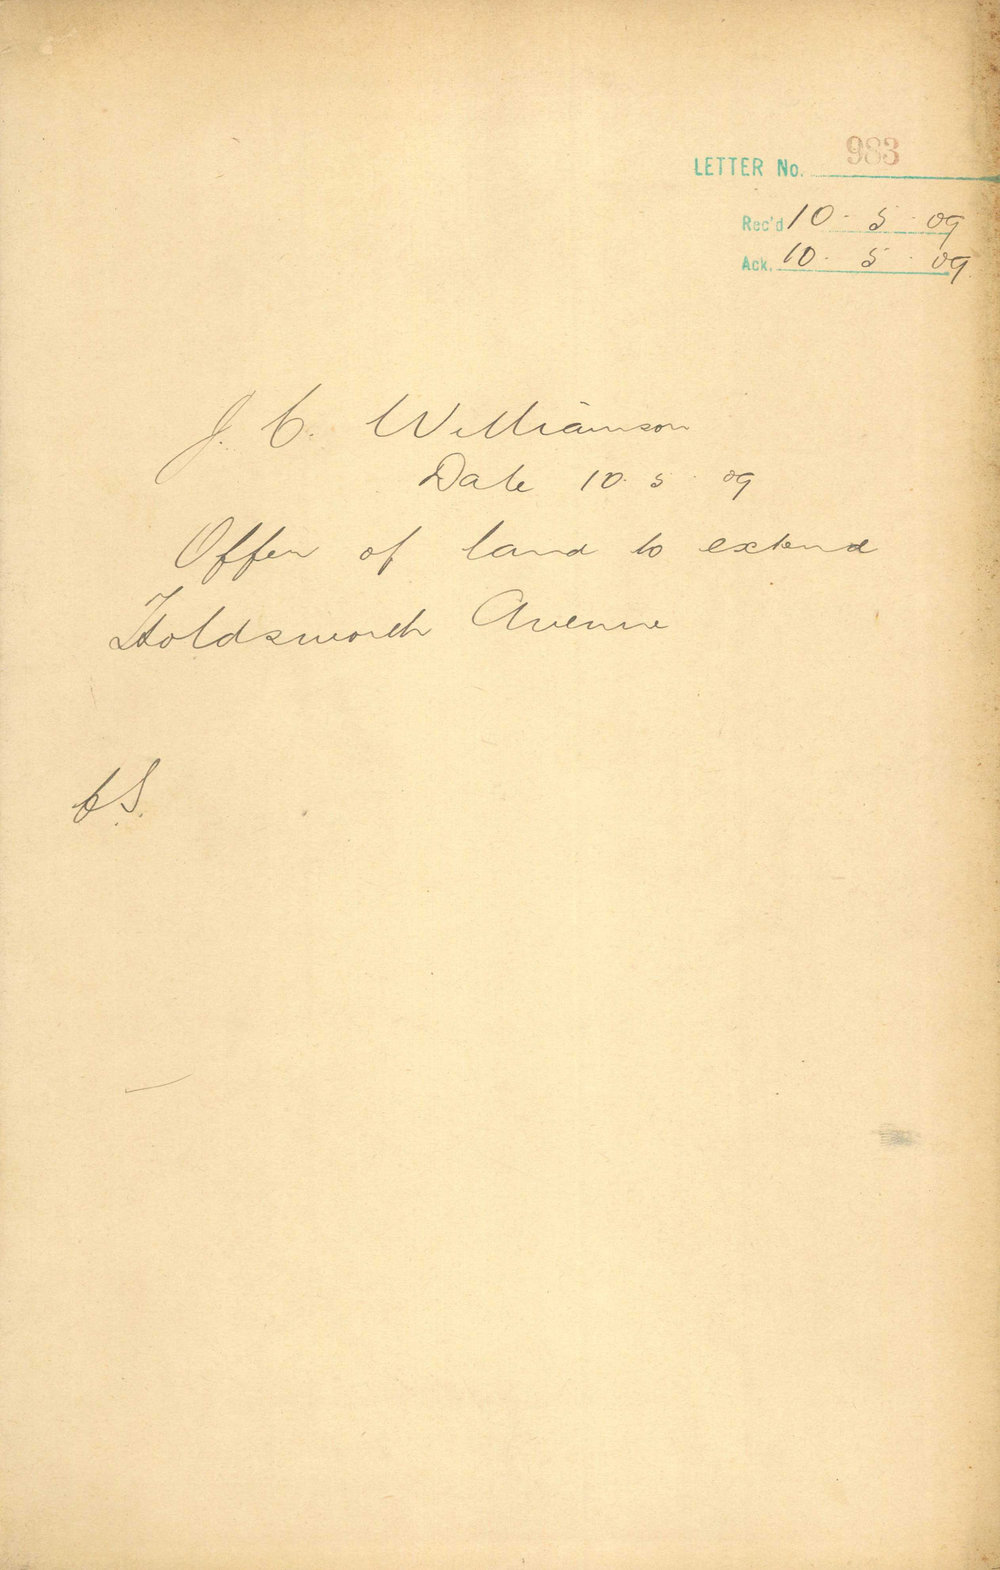 LETTER No. 983
Rec'd 10. 5. 09
Ack. 10. 5. 09
J. C. Williamson
Date 10. 5. 09
Offer of land to extend
Holdsworth Avenue
C.S.